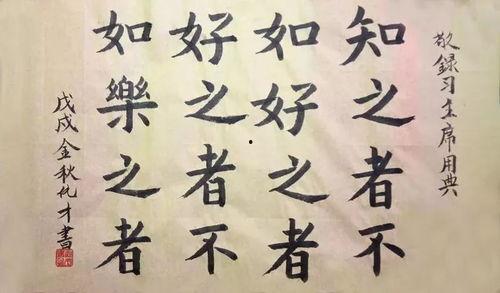 敬録习主席用典
知之者不
如好之者
好之者不
如樂之者
戊戌金秋化才書